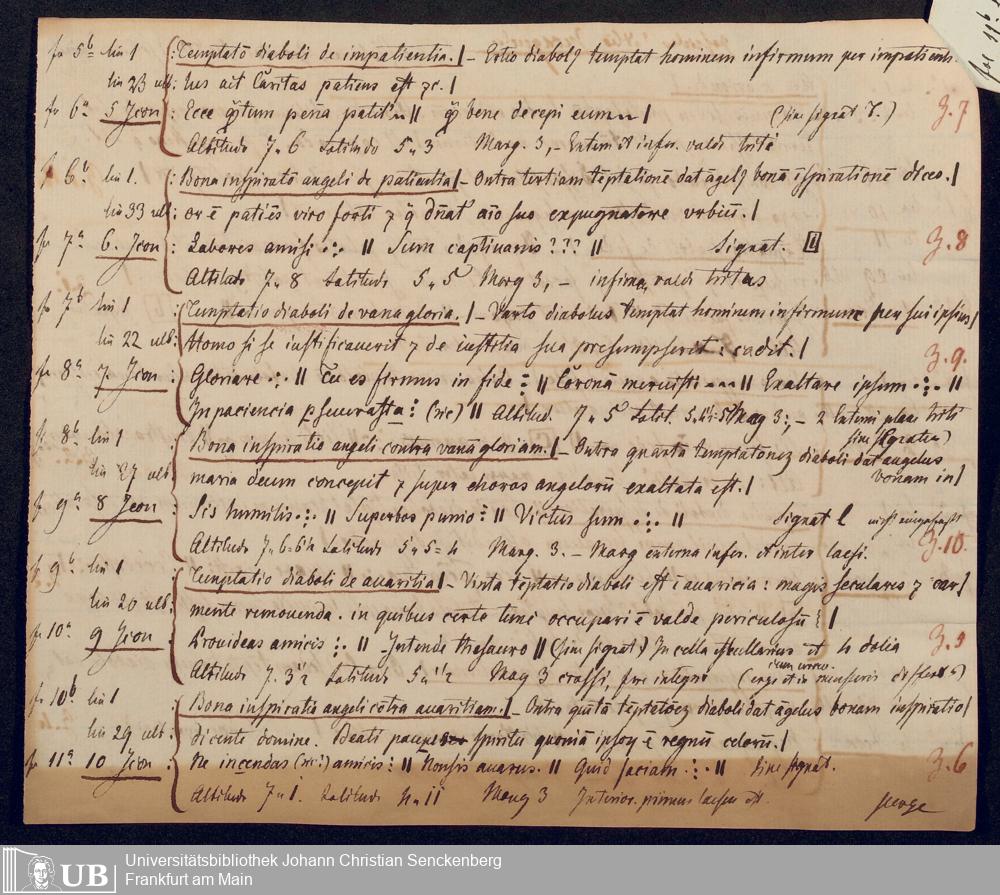 fo 5b lin 1 : Temptatō diaboli de impatientia. | – Ertio diabolꝰ temptat hominem infirmum per impatienti.
lin 23 ult: hec ait Caritas patiens est ⁊c. |
fo 6a 5 Icon : Ecce qͣtum penā patit' || qͣ bene decepi eum | (sine signat r.) Z. 7
Altitudo 7" 6 Latitudo 5" 3 Marg. 3, – Extern et infer. valde trite
fo 6b lin 1. : Bona inspiratō angeli de patientia | – Ontra tertiam tēptationē dat āgelꝰ bonā īspirationē dices. |
lin 33 ult: or ē patiēs viro forti ⁊ q̄ dn̄at' aīo suo expugnatore vrbiū. |
fo 7a 6. Icon : Labores amisi || Sum captiuatus ??? || Signat. Z. 8
Altitudo 7" 8 Latitudo 5" 5 Marg 3, – infima, valde tritus
fo 7b lin 1 : Temptatio diaboli de vana gloria. | – Varto diabolus temptat hominem infirmum per sui ipsius |
lin 22 ult: Homo si se iustificauerit ⁊ de iustitia sua presumpserit : cadit. |
fo 8a 7 Icon : Gloriare || Tu es firmus in fide || Coronā meruisti || Exaltare ipsum || Z. 9.
In paciencia pseuerasta : (sic) || Altitud. 7" 5 Latit. Marg 3; – 2 Externi plane triti
(sine signatura)
fo 8b lin 1 Bona inspiratio angeli contra vanā gloriam. | – Ontra quarta temptatonez diaboli dat angelus
bonam in |
lin 27 ult maria deum concepit ⁊ super choros angelorū exaltata est. |
fo 9a 8 Icon : Sis humilis || Superbos punio || Victus sum || Signat l Z. 10.
Altitudo 7" 6 Latitudo 5" 5 Marg. 3. – Marg externa infer. et inter laesi.
fo 9b lin 1 Temptatio diaboli de auaritia | – Vinta tēptatio diaboli est ī auaricia : magis seculares ⁊ car |
lin 20 ult: mente remouenda. in quibus certe timē occupari ē valde periculosū |
fo 10a 9 Icon . Prouideas amicis || Intende thesauro || (sine signat) In cella et 4 dolia Z. 5
Altitudo 7. 3½ Latitudo 5" ½ Marg 3 crassi, fere integri
fo 10b lin 1 Bona inspiratio angeli cōtra auaritiam. | – Ontra qͥntā tēptatōez diaboli dat āgelus bonam inspiratio |
lin 29 ult : dicente domine. Beati paupes spiritu quoniā ipsoꝝ ē regnū celorū. |
fo 11a 10 Icon : Ne incendas (sic!) amicis : || Nonsis auarus. || Quid faciam || Sine signat. Z. 6
Altitudo 7" 1. Latitudo 4" 11 Marg 3 Interior. primus laesus est.
Universitätsbibliothek Johann Christian Senckenberg
UB Frankfurt am Main